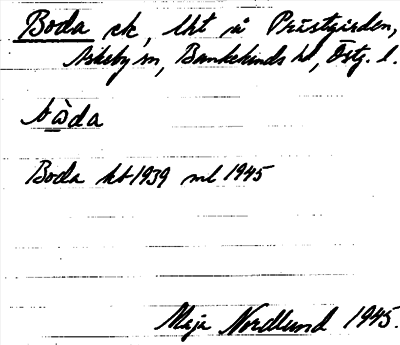 Boda ck, lht på Prästgården,
Askeby sn, Bankekinds hd, Östg. l.
bωda
Boda kb 1939 ml 1945
Maja Nordlund 1945.